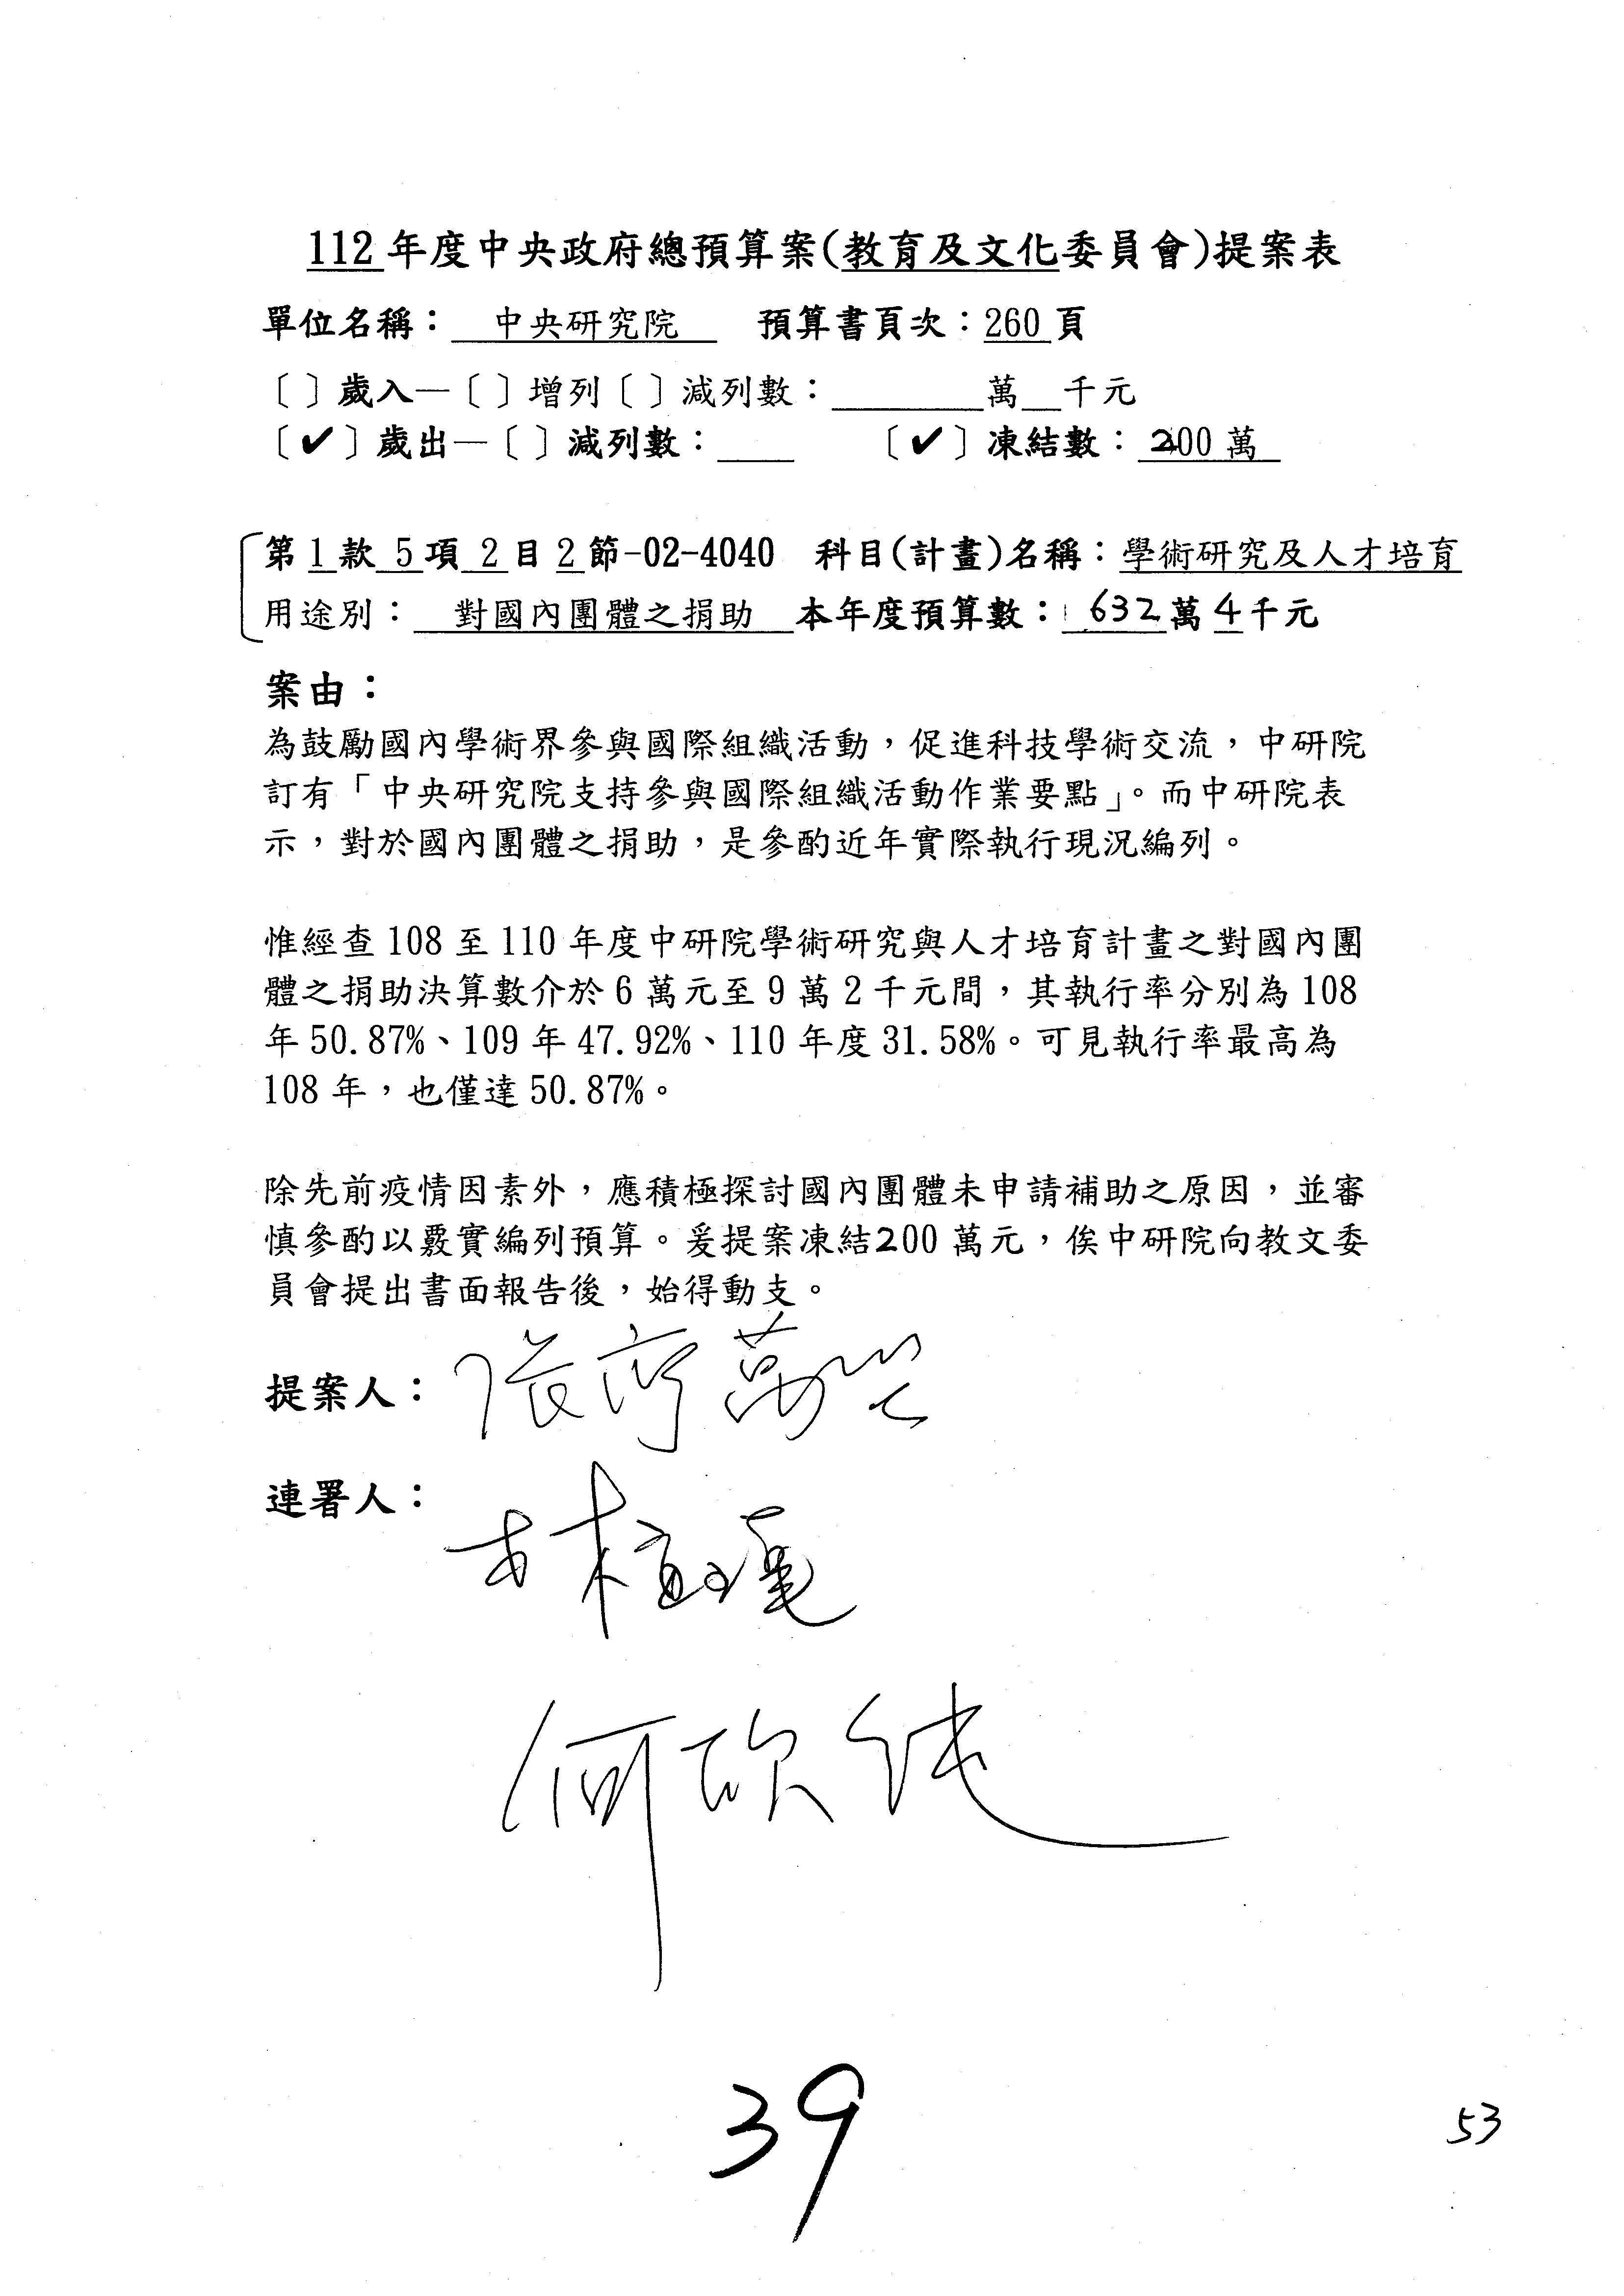 112年度中央政府總預算案(教育及文化委員會)提案表
單位名稱： 中央研究院 預算書頁次：260頁
〔 〕歲入—〔 〕增列〔 〕減列數： 萬 千元
〔✔〕歲出—〔 〕減列數： 〔✔〕凍結數：200萬
第1款5項2目2節-02-4040 科目(計畫)名稱：學術研究及人才培育
用途別： 對國內團體之捐助 本年度預算數：632萬4千元
案由：
為鼓勵國內學術界參與國際組織活動，促進科技學術交流，中研院
訂有「中央研究院支持參與國際組織活動作業要點」。而中研院表
示，對於國內團體之捐助，是參酌近年實際執行現況編列。
惟經查108至110年度中研院學術研究與人才培育計畫之對國內團
體之捐助決算數介於6萬元至9萬2千元間，其執行率分別為108
年50.87%、109年47.92%、110年度31.58%。可見執行率最高為
108年，也僅達50.87%。
除先前疫情因素外，應積極探討國內團體未申請補助之原因，並審
慎參酌以覈實編列預算。爰提案凍結200萬元，俟中研院向教文委
員會提出書面報告後，始得動支。
提案人：張廖萬堅
連署人：
林宜瑾
何欣純
39
53